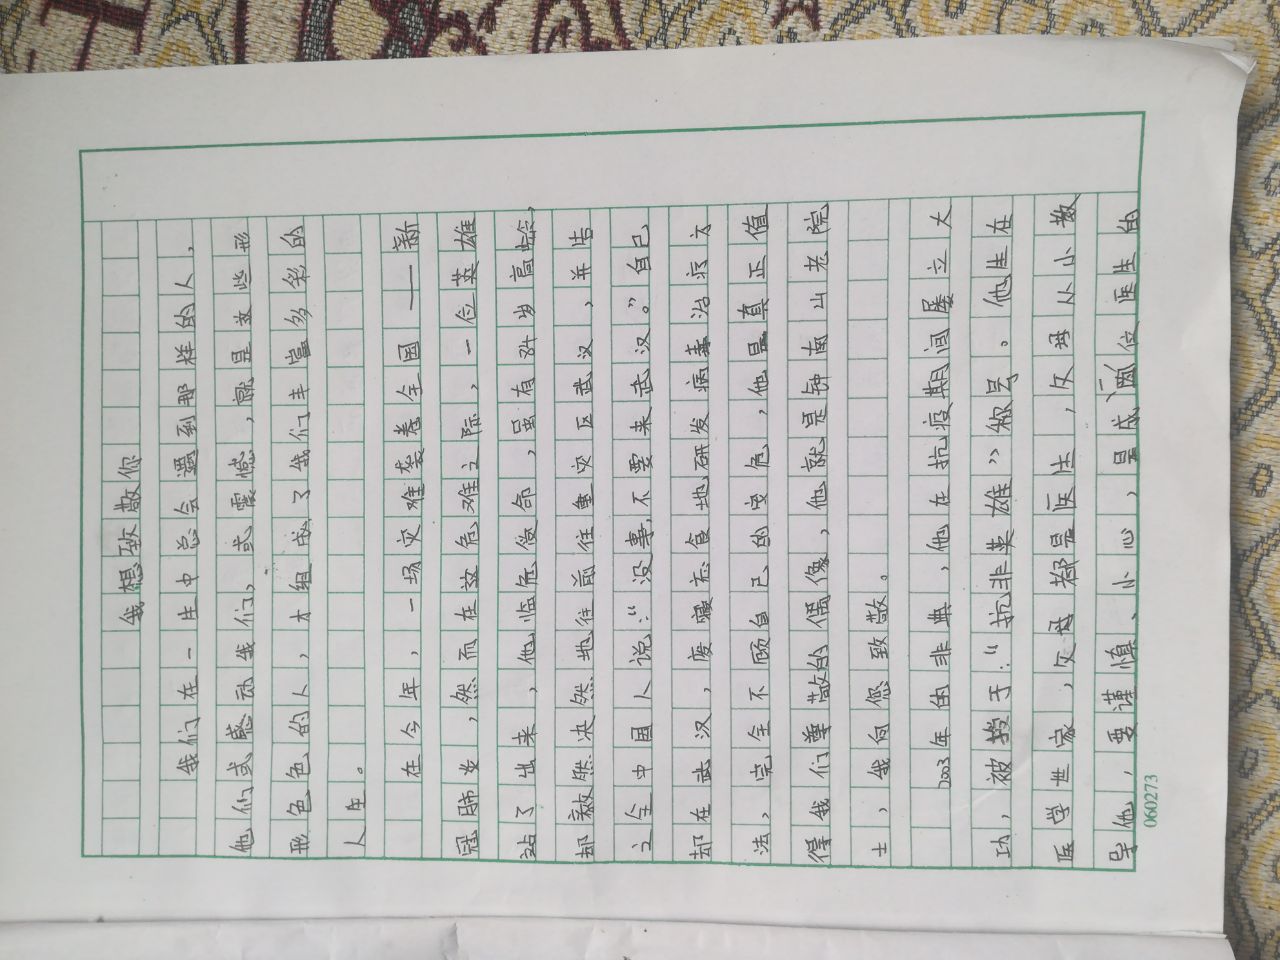 我想致敬你
我们在一生中总会遇到那样的人,
他们或感动我们、或震憾,就是这些形
形色色的人,才组成了我们丰富多彩的
人生。
在今年,一场灾难袭卷全国——新
冠肺炎,然而在这危难之际,一位英雄
站了出来,他临危受命,虽有84岁高龄,
却毅然决然地往前往重灾区武汉,并告
之全中国人说:“没事,不要来武汉。”自己
却在武汉,废寝忘食地研发病毒治疗方
法,完全不顾自己的安危,他是真正值
得我们尊敬的偶像,他就是钟南山老院
士,我向您致敬。
2003年的非典,他在抗疫期间屡立大
功,被授于:“抗非英雄”称号。他生在
医学世家,父母都是医生,父母从小教
导他,要谨慎、小心,是成两位医生的
060273